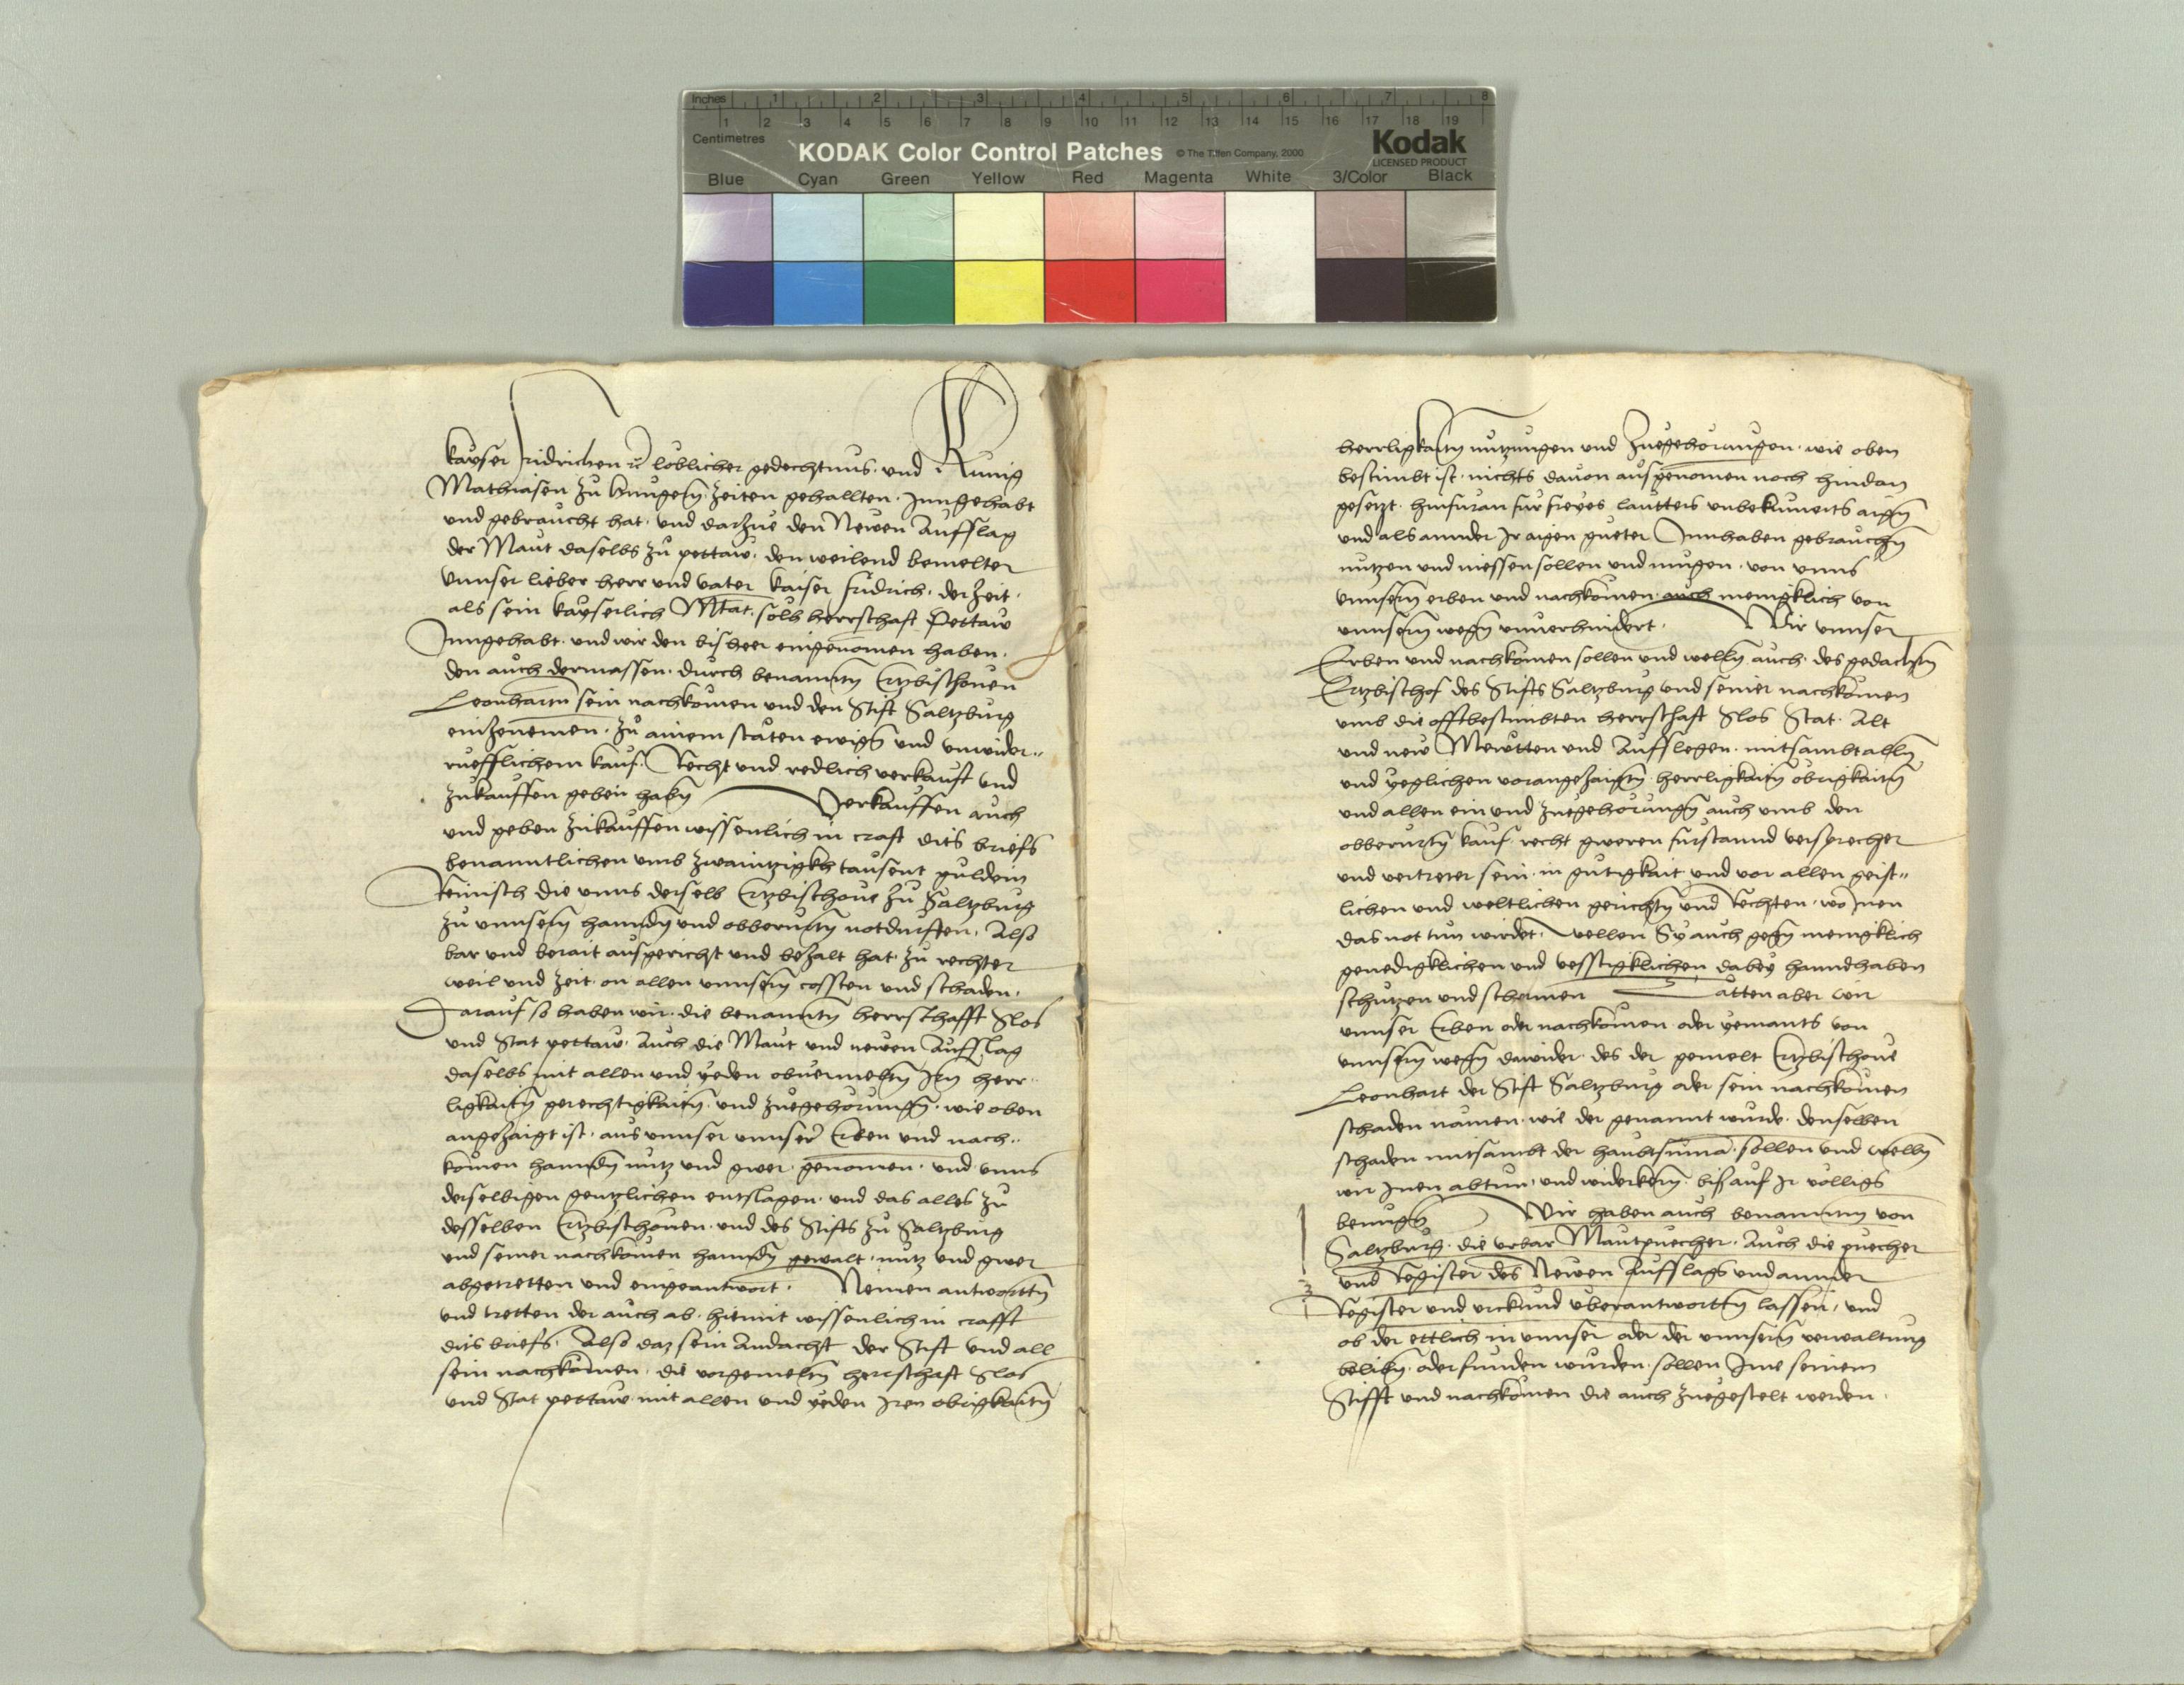 Inches 1 2 3 4 5 6 7 8
1 2 3 4 5 6 7 8 9 10 11 12 13 14 15 16 17 18 19
Centimetres
KODAK Color Control Patches © The Tiffen Company, 2000 Kodak
LICENSED PRODUCT
Blue Cyan Green Yellow Red Magenta White 3/Color Black
kayser Fridrichen loblicher gedechtnus und Kunig
Mathiasen zu Hungern zeiten gehallten Inngehabt
und gebraucht hat und darzue den Newen Aufflag
der Maut daselbs zu pettaw den weilend bemelter
Unnser lieber herr und vater kaiser fridrich der zeit
als sein kayserlich Mtat solh herrschaft Pettaw
Inngehabt und wir den bisheer eingenomen haben
den auch dermassen durch benannten Ertzbischoven
Leonharten sein nachkomen und den Stift Saltzburg
einzenemen zu ainem stäten ewigen und unwider„
ruefflichem kauf Recht und redlich verkauft und
zukauffen geben haben Verkauffen auch
und geben zukauffen wissenlich in craft dits briefs
benanntlichen umb zwaintzigkh tausent guldein
Reinisch die unns derselb Ertzbischove zu Saltzburg
zu unnsern hannden und obberurten notdurften Also
bar und berait ausgericht und bezalt hat zu rechter
weil und zeit on allen unnsern cossten und schaden
Darauf so haben wir die benannten herrschafft Slos
und Stat pettaw Auch die Maut und newen Aufflag
daselbs mit allen und yeden obvermelten Irn herr„
ligkaiten gerechtigkaiten und zuegehorungen wie oben
angezaigt ist aus unnser unnser Erben und nach„
komen hannden nutz und gwer genomen und unns
derselbigen gentzlichen entslagen und das alles zu
desselben Ertzbischoven und des Stifts zu Saltzburg
und seiner nachkomen hannden gewalt nutz und gwer
abgetretten und eingeantwort Nemen antwortten
und tretten der auch ab hiemit wissenlich in crafft
dits briefs Also daz sein Andacht der Stift und all
sein nachkomen die vorgemelten herrschaft Slos
und Stat pettaw mit allen und yeden Iren obrigkaiten
herrligkaiten nutzungen und Zuegehorungen wie oben
bestimbt ist nichts davon ausgenomen noch hindan
gesetzt hinfuran fur freyes lautters unbekumerts aigen
und als annder Ir aigen gueter Innhaben gebrauchen
nutzen und niessen sollen und mugen von unns
unnsern erben und nachkomen auch menigklich von
unnsern wegen unverhindert Wir unnser
Erben und nachkomen sollen und wellen auch des gedachten
Ertzbischof des Stifts Saltzburg und seiner nachkomen
umb die offtbestimbten herrschaft Slos Stat Alt
und new Mewtten und Aufflegen mitsambt allen
und yeglichen vorangezaigten herrligkaiten obrigkaiten
und allen ein und zuegehorungen auch umb den
obberurten kauf recht gweren furstannd versprecher
und vertreter sein in gutigkait und vor allen geist„
lichen und weltlichen gerichten und Rechten wo Inen
das not tun wirdet wellen Sy auch gegen menigklich
genedigklichen und vesstigklichen dabey hanndhaben
schutzen und schermen Tätten aber wir
unnser Erben oder nachkomen oder yemants von
unnsern wegen dawider des der gemelt Ertzbischove
Leonhart der Stift Saltzburg oder sein nachkomen
schaden namen wie der genannt wurde denselben
schaden mitsambt der haubtsuma sollen und wellen
wir Inen abtun und widerkern bis auf Ir volligs
benugen Wir haben auch benannten von
Saltzburg die urbar Mautpuecher Auch die puecher
und Register des Newen Aufflags und annder
Register und urckund uberantwortten lassen und
ob der ettlich in unnser oder der unnsern verwaltung
beliben oder funden wurden sollen Ime seinem
Stifft und nachkomen die auch zuegestelt werden